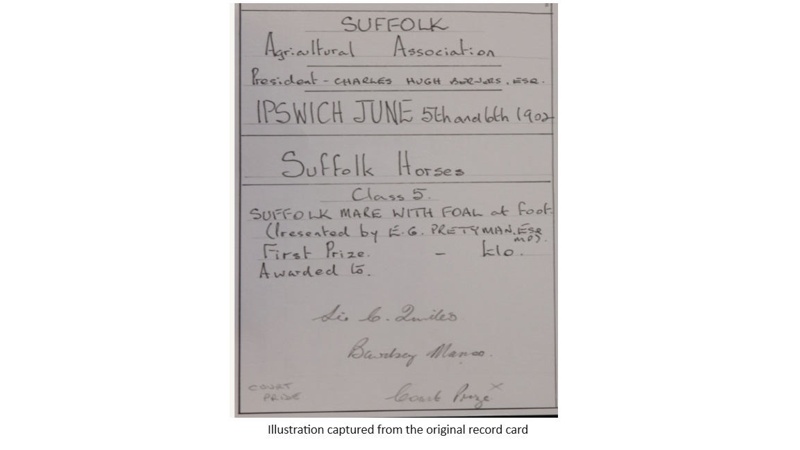 SUFFOLK
Agricultural Association
President - CHARLES HUGH BERNERS, ESQ.
IPSWICH JUNE 5th and 6th 1902
Suffolk Horses
Class 5.
SUFFOLK MARE WITH FOAL at foot.
(Presented by E.G. PRETYMAN, ESQ
MP).
First Prize. - £10.
Awarded to.
Sir C. Quilter
Bawdsey Manor.
COURT
PRIZE
Court Prize X
Illustration captured from the original record card